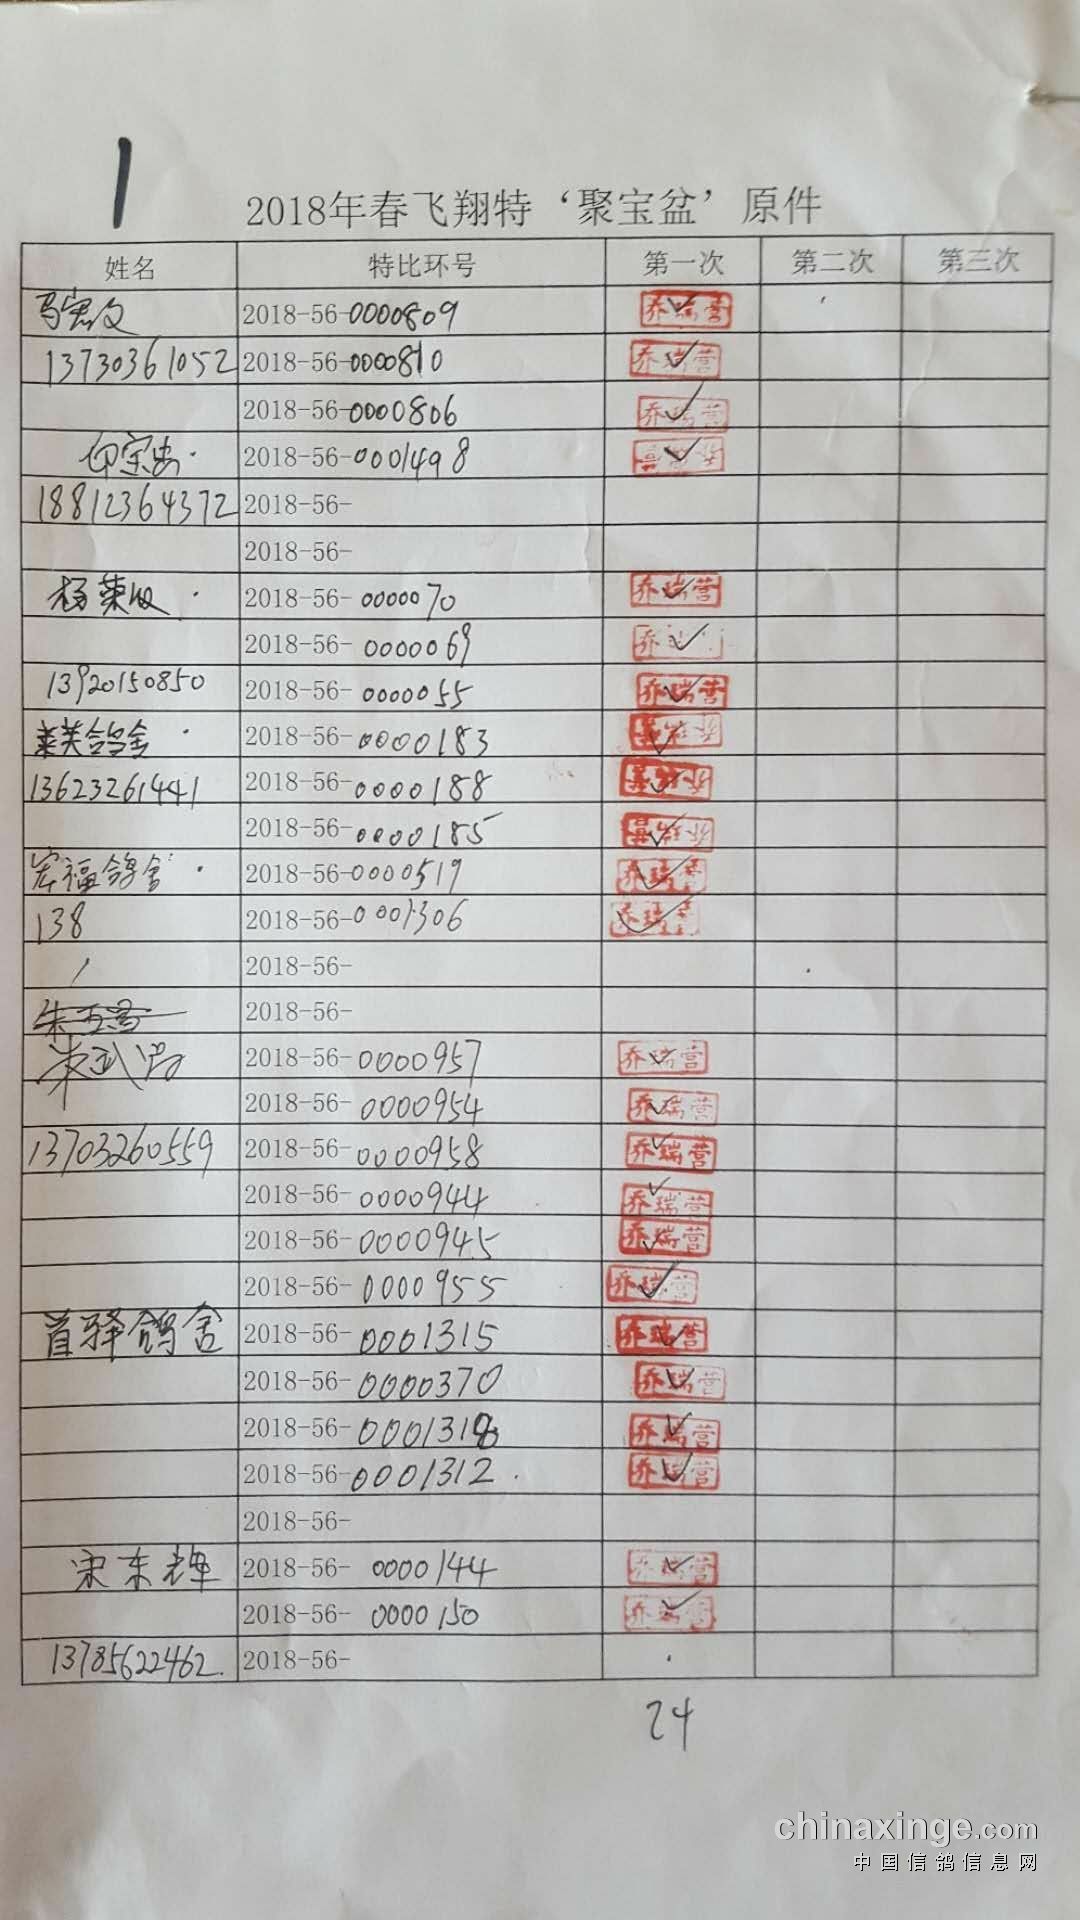 1
2018年春飞翔特‘聚宝盆’原件
姓名 特比环号 第一次 第二次 第三次
2018-56-0000809 乔瑞营
13730361052 2018-56-0000810 乔瑞营
2018-56-0000806 乔瑞营
2018-56-0001498 乔瑞营
18812364372 2018-56-
2018-56-
2018-56-0000070 乔瑞营
2018-56-0000069 乔
13920150850 2018-56-0000055 乔瑞营
莱芙鸽舍 2018-56-0000183 乔瑞营
13623261441 2018-56-0000188 乔瑞营
2018-56-0000185 乔瑞营
宏福鸽舍 2018-56-0000519 乔瑞营
138 2018-56-0001306 乔瑞营
2018-56-
2018-56-
2018-56-0000957 乔瑞营
2018-56-0000954 乔瑞营
13703260559 2018-56-0000958 乔瑞营
2018-56-0000944 乔瑞营
2018-56-0000945 乔瑞营
2018-56-0000955 乔瑞营
首驿鸽舍 2018-56-0001315 乔瑞营
2018-56-0000370 乔瑞营
2018-56-0001318 乔瑞营
2018-56-0001312 乔瑞营
2018-56-
宋东辉 2018-56-0000144 乔瑞营
2018-56-0000150 乔瑞营
13785622462 2018-56-
24
chinaxinge.com
中国信鸽信息网